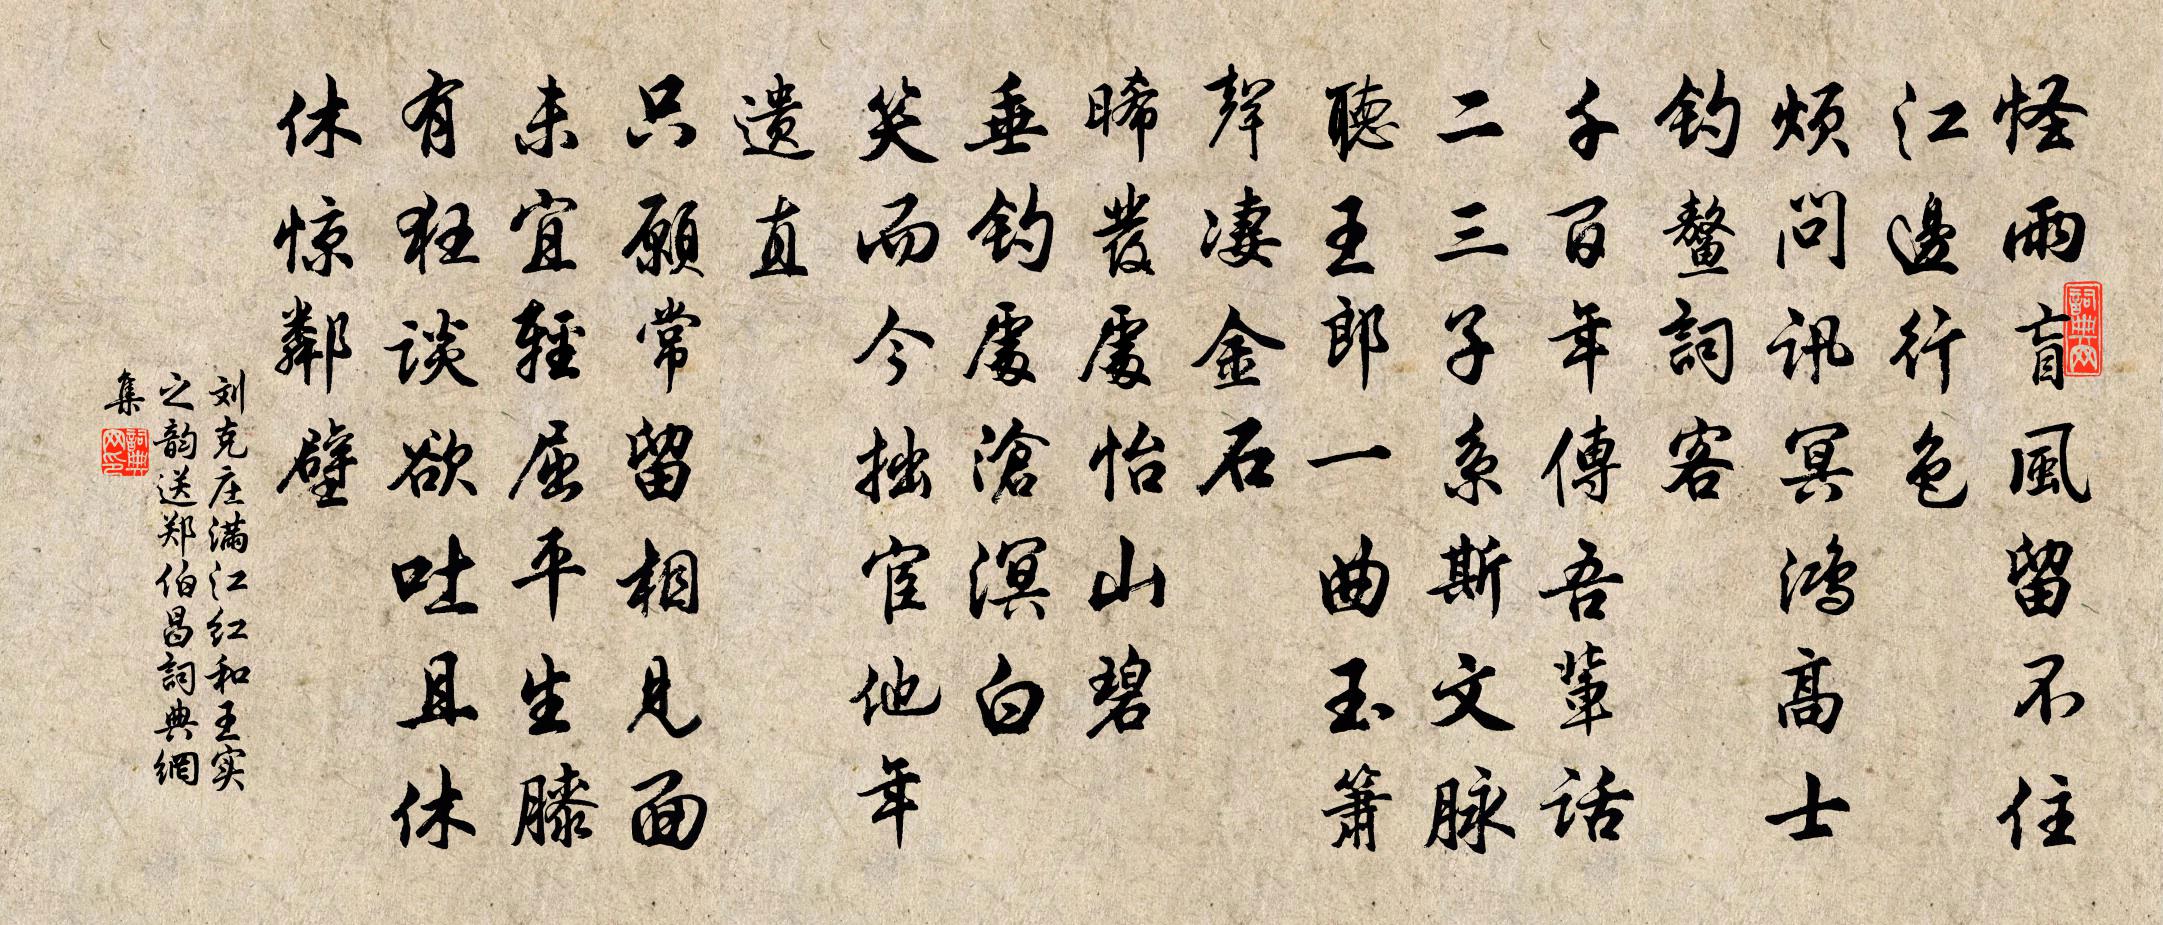 怪雨盲風留不住
江邊行色
煩問訊冥鴻高士
釣鼇詞客
千百年傳吾輩話
二三子系斯文脉
聽王郎一曲玉簫
聲凄金石
晞發處怡山碧
垂釣處滄溟白
笑而今拙宦他年
遺直
只願常留相見面
未宜輕屈平生膝
有狂談欲吐且休
休惊鄰壁
刘克庄满江红和王实
之韵送郑伯昌詞典網
集
詞典网
詞典网印